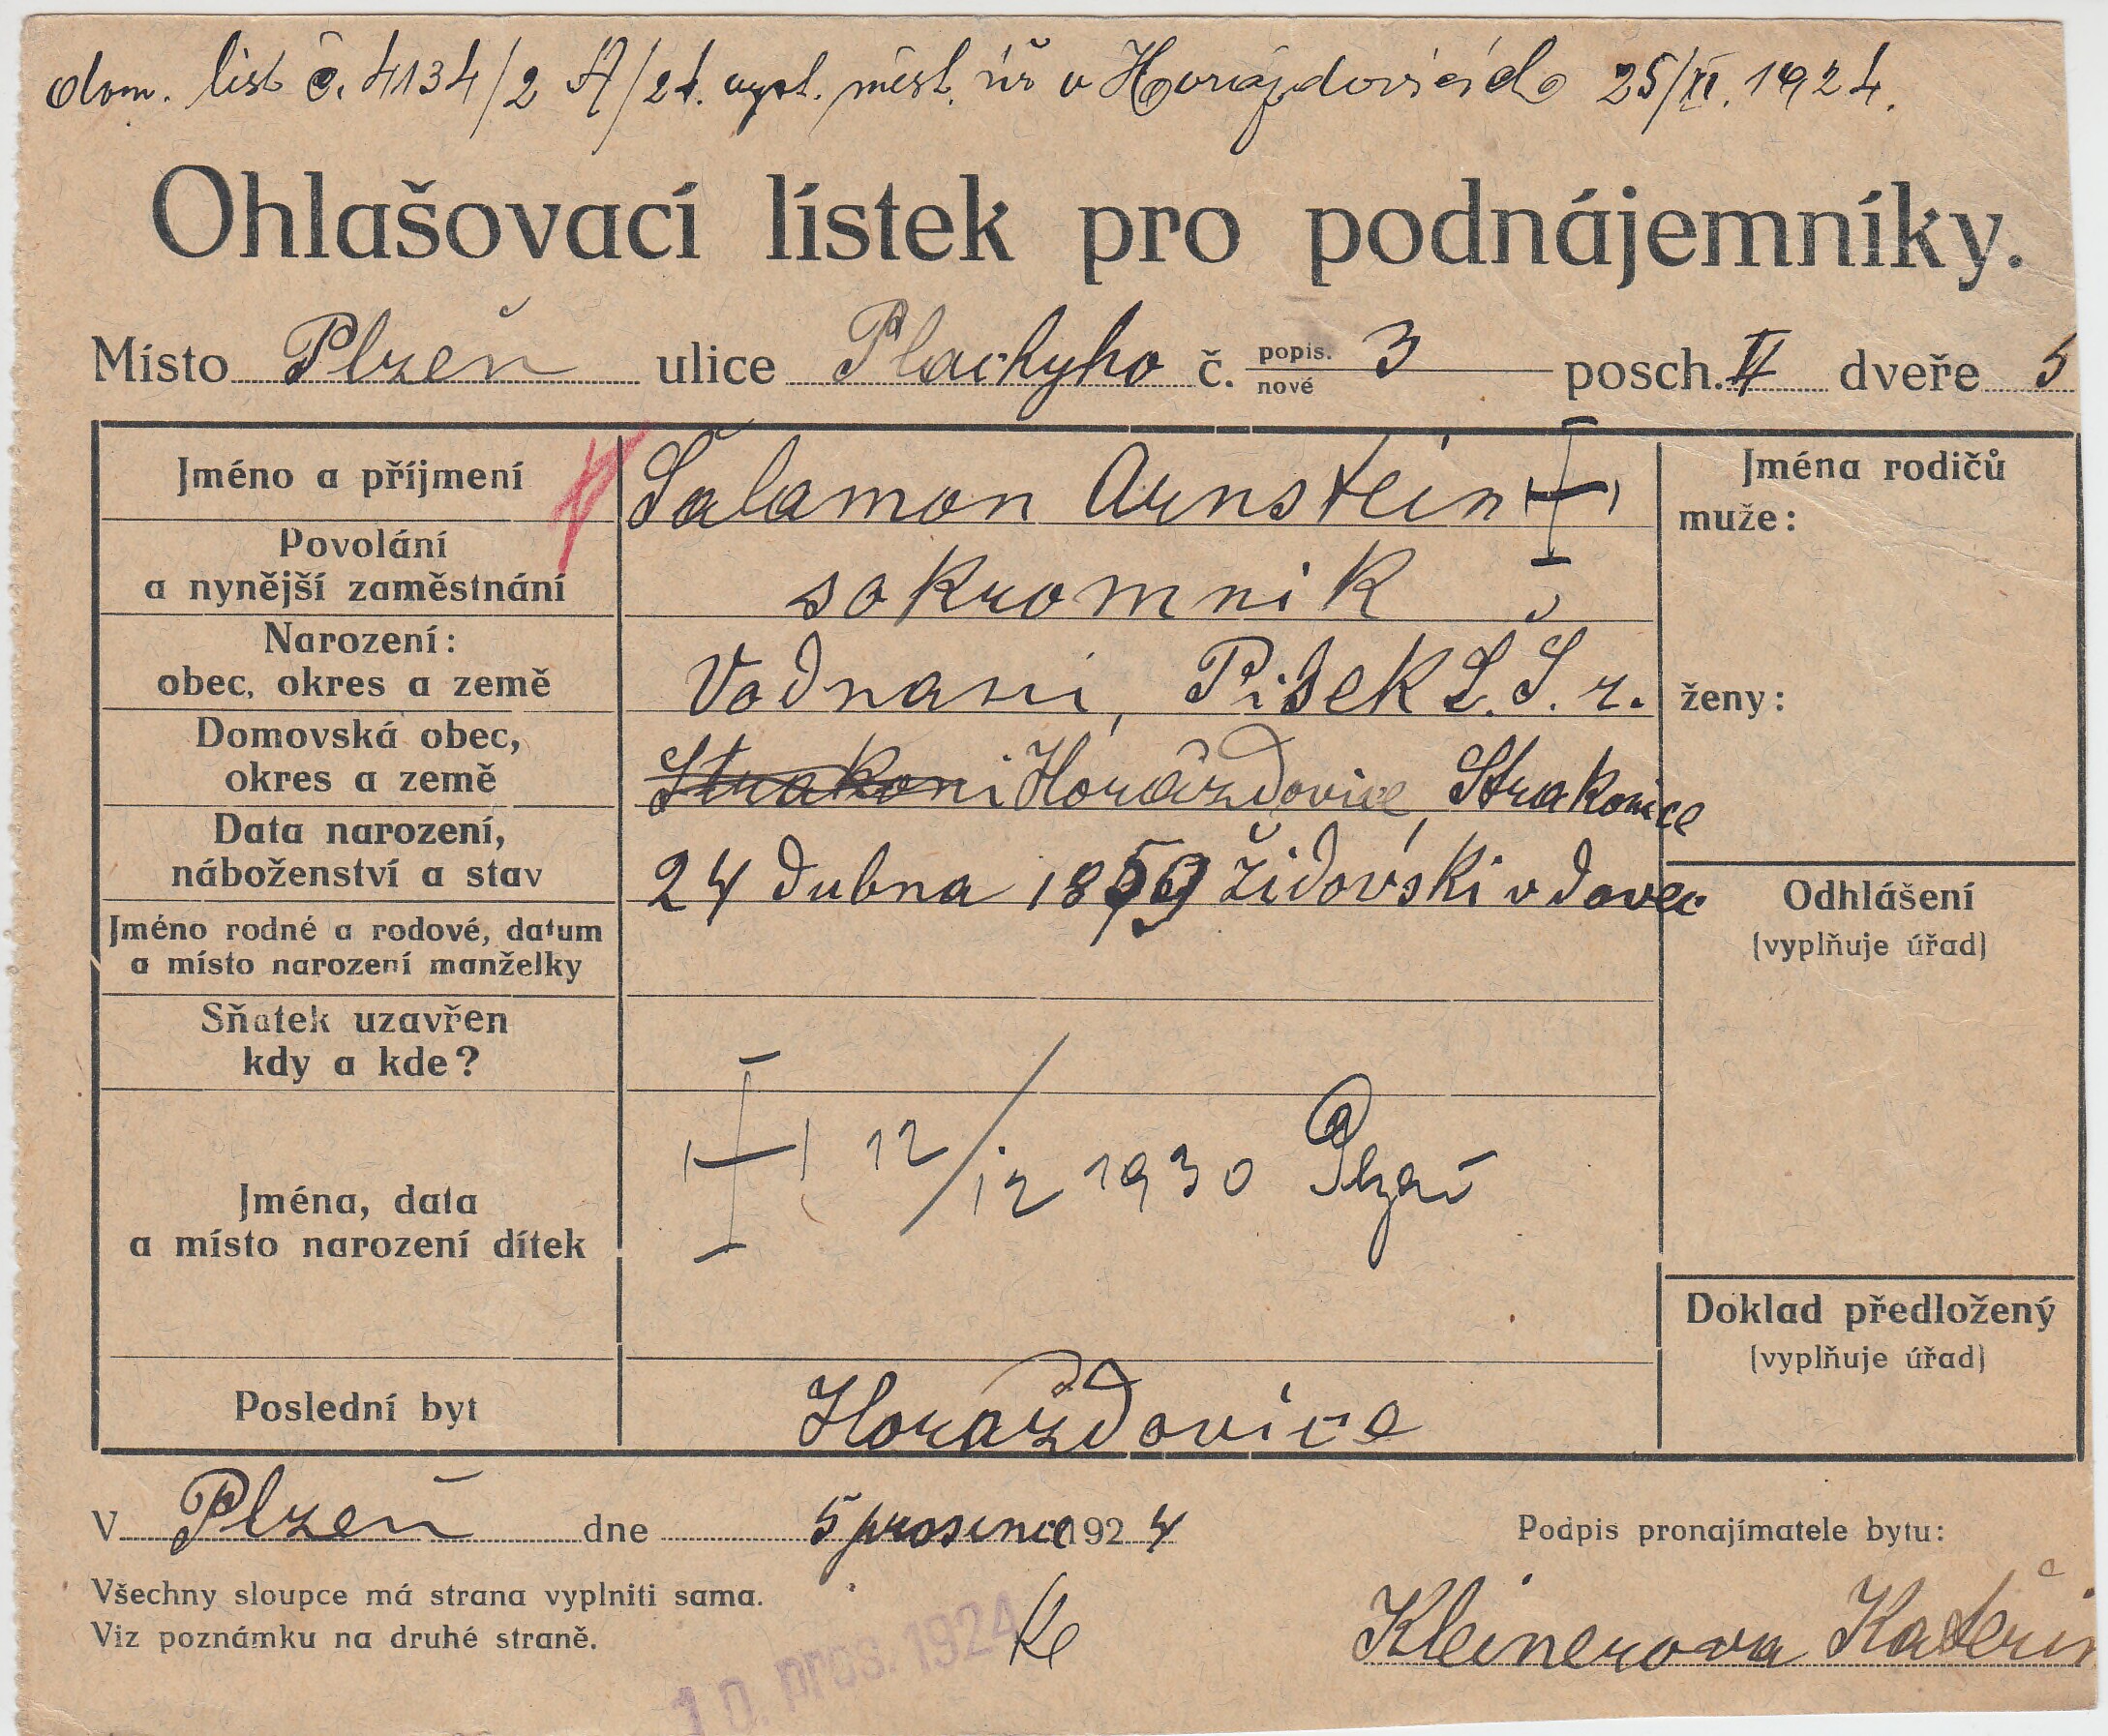 dom. list č. 4134/2 A/24. vyst. měst. úř v Horažďovicích 25/XI. 1924.
Ohlašovací lístek pro podnájemníky.
Místo Plzeň ulice Plachyho č. popis. nové 3 posch. II dveře 5
Jméno a příjmení Salamon Arnstein
Povolání a nynější zaměstnání sokromnik
Narození: obec, okres a země Vodnani, Pisek Č. S. r.
Domovská obec, okres a země Strakoni Horažďovice, Strakonice
Data narození, náboženství a stav 24 dubna 1859 židovski vdovec
Jméno rodné a rodové, datum a místo narození manželky
Sňatek uzavřen kdy a kde?
Jména, data a místo narození dítek 12/12 1930 Plzeň
Poslední byt Horažďovice
Jména rodičů
muže:
ženy:
Odhlášení
(vyplňuje úřad)
Doklad předložený
(vyplňuje úřad)
V Plzeň dne 5 prosince 1924
Podpis pronajímatele bytu:
Všechny sloupce má strana vyplniti sama.
Viz poznámku na druhé straně.
Kleinerova
10. pros. 1924